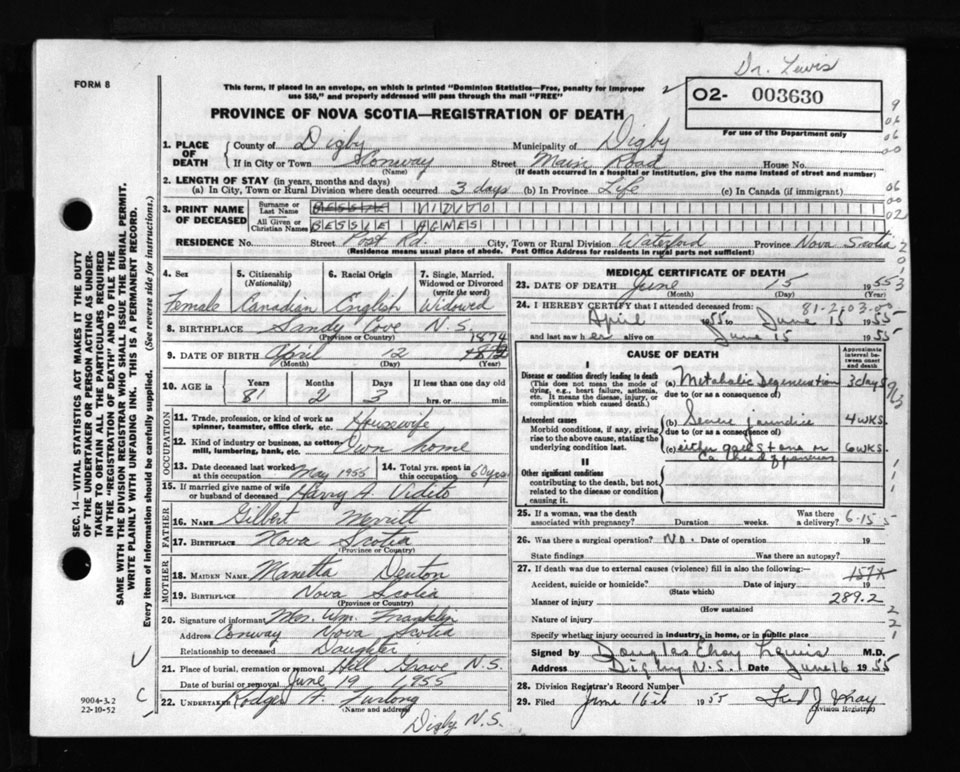 Dr. Lewis
FORM 8
This form, if placed in an envelope, on which is printed "Dominion Statistics—Free, penalty for improper
use $50," and properly addressed will pass through the mail "FREE"
02- 003630
For use of the Department only
PROVINCE OF NOVA SCOTIA—REGISTRATION OF DEATH
1. PLACE OF DEATH
County of Digby Municipality of Digby
If in City or Town Conway Street Main Road House No.
(Name) (If death occurred in a hospital or institution, give the name instead of street and number)
2. LENGTH OF STAY (in years, months and days)
(a) In City, Town or Rural Division where death occurred 3 days (b) In Province Life (c) In Canada (if immigrant)
3. PRINT NAME OF DECEASED
Surname or Last Name VIDITO
All Given or Christian Names BESSIE AGNES
RESIDENCE No. Street Post Rd. City, Town or Rural Division Waterford Province Nova Scotia
(Residence means usual place of abode. Post Office Address for residents in rural parts not sufficient)
4. Sex Female
5. Citizenship (Nationality) Canadian
6. Racial Origin English
7. Single, Married, Widowed or Divorced (write the word) Widowed
8. BIRTHPLACE Sandy Cove N.S.
(Province or Country)
1874
9. DATE OF BIRTH April 12
(Month) (Day) (Year)
10. AGE in Years 81 Months 2 Days 3 If less than one day old hrs. or min.
OCCUPATION
11. Trade, profession, or kind of work as spinner, teamster, office clerk, etc. Housewife
12. Kind of industry or business, as cotton mill, lumbering, bank, etc. Own home
13. Date deceased last worked at this occupation May 1955 14. Total yrs. spent in this occupation 60 yrs
15. If married give name of wife or husband of deceased Harry A. Vidito
FATHER
16. NAME Gilbert Merritt
17. BIRTHPLACE Nova Scotia
(Province or Country)
MOTHER
18. MAIDEN NAME Manetta Denton
19. BIRTHPLACE Nova Scotia
(Province or Country)
20. Signature of informant Mrs. Wm. Franklin
Address Conway Nova Scotia
Relationship to deceased Daughter
21. Place of burial, cremation or removal Hill Grove N.S.
Date of burial or removal June 19 1955
22. UNDERTAKER A. Furlong
(Name and address)
Digby N.S.
MEDICAL CERTIFICATE OF DEATH
23. DATE OF DEATH June 15 1955
(Month) (Day) (Year)
24. I HEREBY CERTIFY that I attended deceased from:
April 1955 to June 15 1955
and last saw her alive on June 15 1955
CAUSE OF DEATH
Approximate interval between onset and death
I
Disease or condition directly leading to death
(This does not mean the mode of dying, e.g., heart failure, asthenia, etc. It means the disease, injury, or complication which caused death.)
(a) Metabolic Degeneration 3 days
due to (or as a consequence of)
Antecedent causes
Morbid conditions, if any, giving rise to the above cause, stating the underlying condition last.
(b) Severe jaundice 4 wks.
due to (or as a consequence of)
(c) either gall stone or 6 wks.
Ca head of pancreas
II
Other significant conditions contributing to the death, but not related to the disease or condition causing it.
25. If a woman, was the death associated with pregnancy? Duration weeks. Was there a delivery?
26. Was there a surgical operation? No. Date of operation 19
State findings Was there an autopsy?
27. If death was due to external causes (violence) fill in also the following:—
Accident, suicide or homicide? Date of injury 19
(State which)
157x
Manner of injury 289.2
(How sustained)
Nature of injury
Specify whether injury occurred in industry, in home, or in public place
Signed by Douglas Lewis M.D.
Address Digby N.S. Date June 16 1955
28. Division Registrar's Record Number
29. Filed June 16th 1955
(Division Registrar)
SEC. 14—VITAL STATISTICS ACT MAKES IT THE DUTY
OF THE UNDERTAKER OR PERSON ACTING AS UNDER-
TAKER TO OBTAIN ALL THE PARTICULARS REQUIRED
IN THE "REGISTRATION OF DEATH" AND TO FILE THE
SAME WITH THE DIVISION REGISTRAR WHO SHALL ISSUE THE BURIAL PERMIT.
WRITE PLAINLY WITH UNFADING INK. THIS IS A PERMANENT RECORD.
Every item of information should be carefully supplied. (See reverse side for instructions.)
9004-3.2
22-10-52